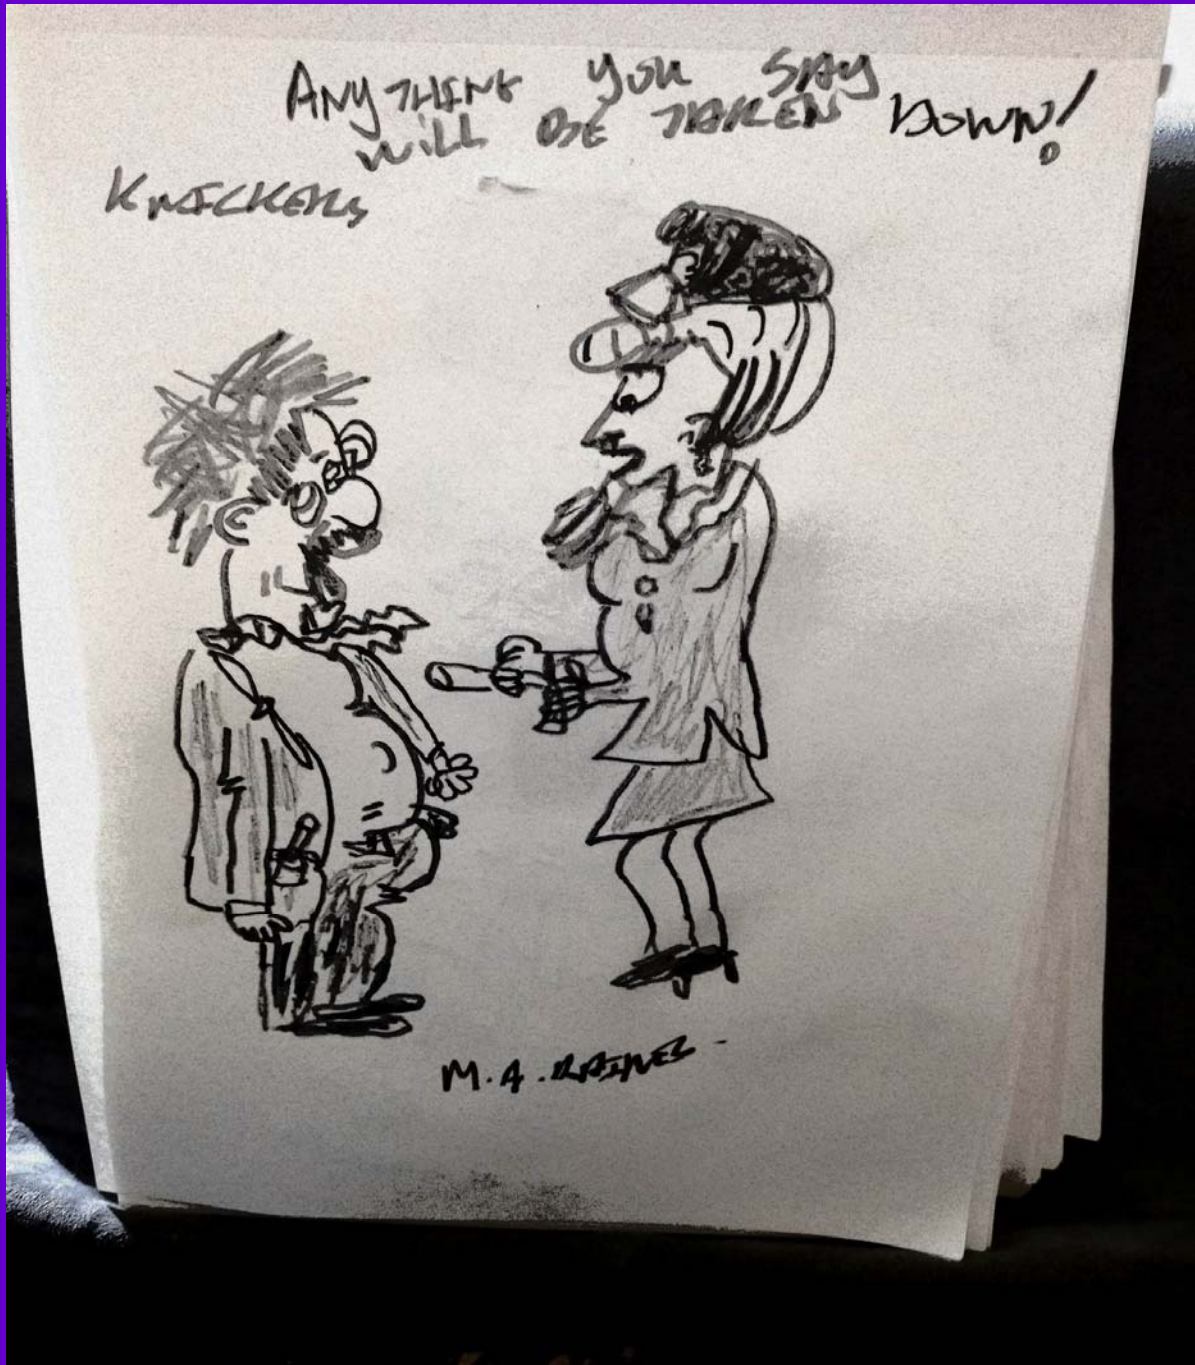 ANYTHING YOU SAY
WILL BE TAKEN DOWN!
KNICKERS
M.A. RAINES